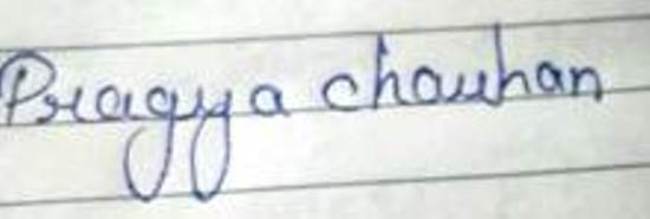 Pragya chauhan